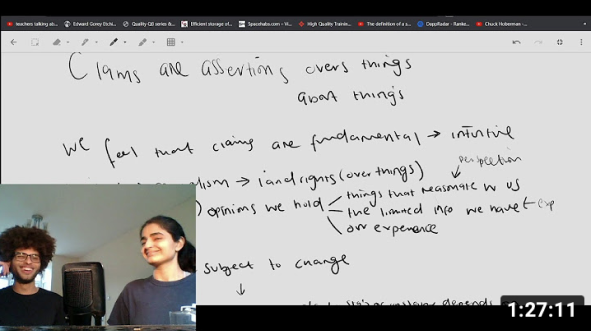 teachers talking ab...
Edward Gorey Dichi...
Quality QB series &...
Efficient storage of...
Spacehabs.com – Vi...
High Quality Trainin...
The definition of a s...
DeppRadar - Ranke...
Chuck Hoberman -...
Claims are assertions overs things
about things
we feel that claims are fundamental → intuitive
perspection
→ land rights (over things)
) opinions we hold
things that reasonate w us
the limited info we have ← exp
our experience
subject to change
1:27:11